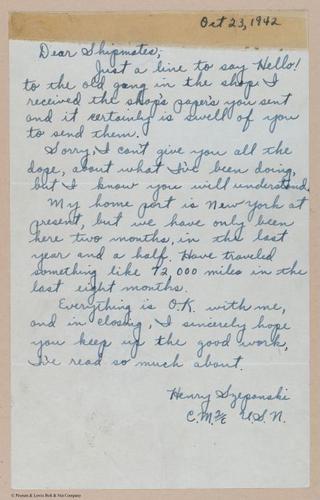 Oct 23, 1942
Dear Shipmates;
Just a line to say Hello!
to the old gang in the shop. I
received the shop's papers you sent
and it certainly is swell of you
to send them.
Sorry, I can't give you all the
dope, about what I've been doing,
but I know you will understand.
My home port is New York at
present, but we have only been
here two months, in the last
year and a half. Have traveled
something like 72,000 miles in the
last eight months.
Everything is O.K. with me,
and in closing, I sincerely hope
you keep up the good work,
I've read so much about.
Henry Szeponski
C.M 2/c U.S.N.
© Pearson & Lewis Bolt & Nut Company